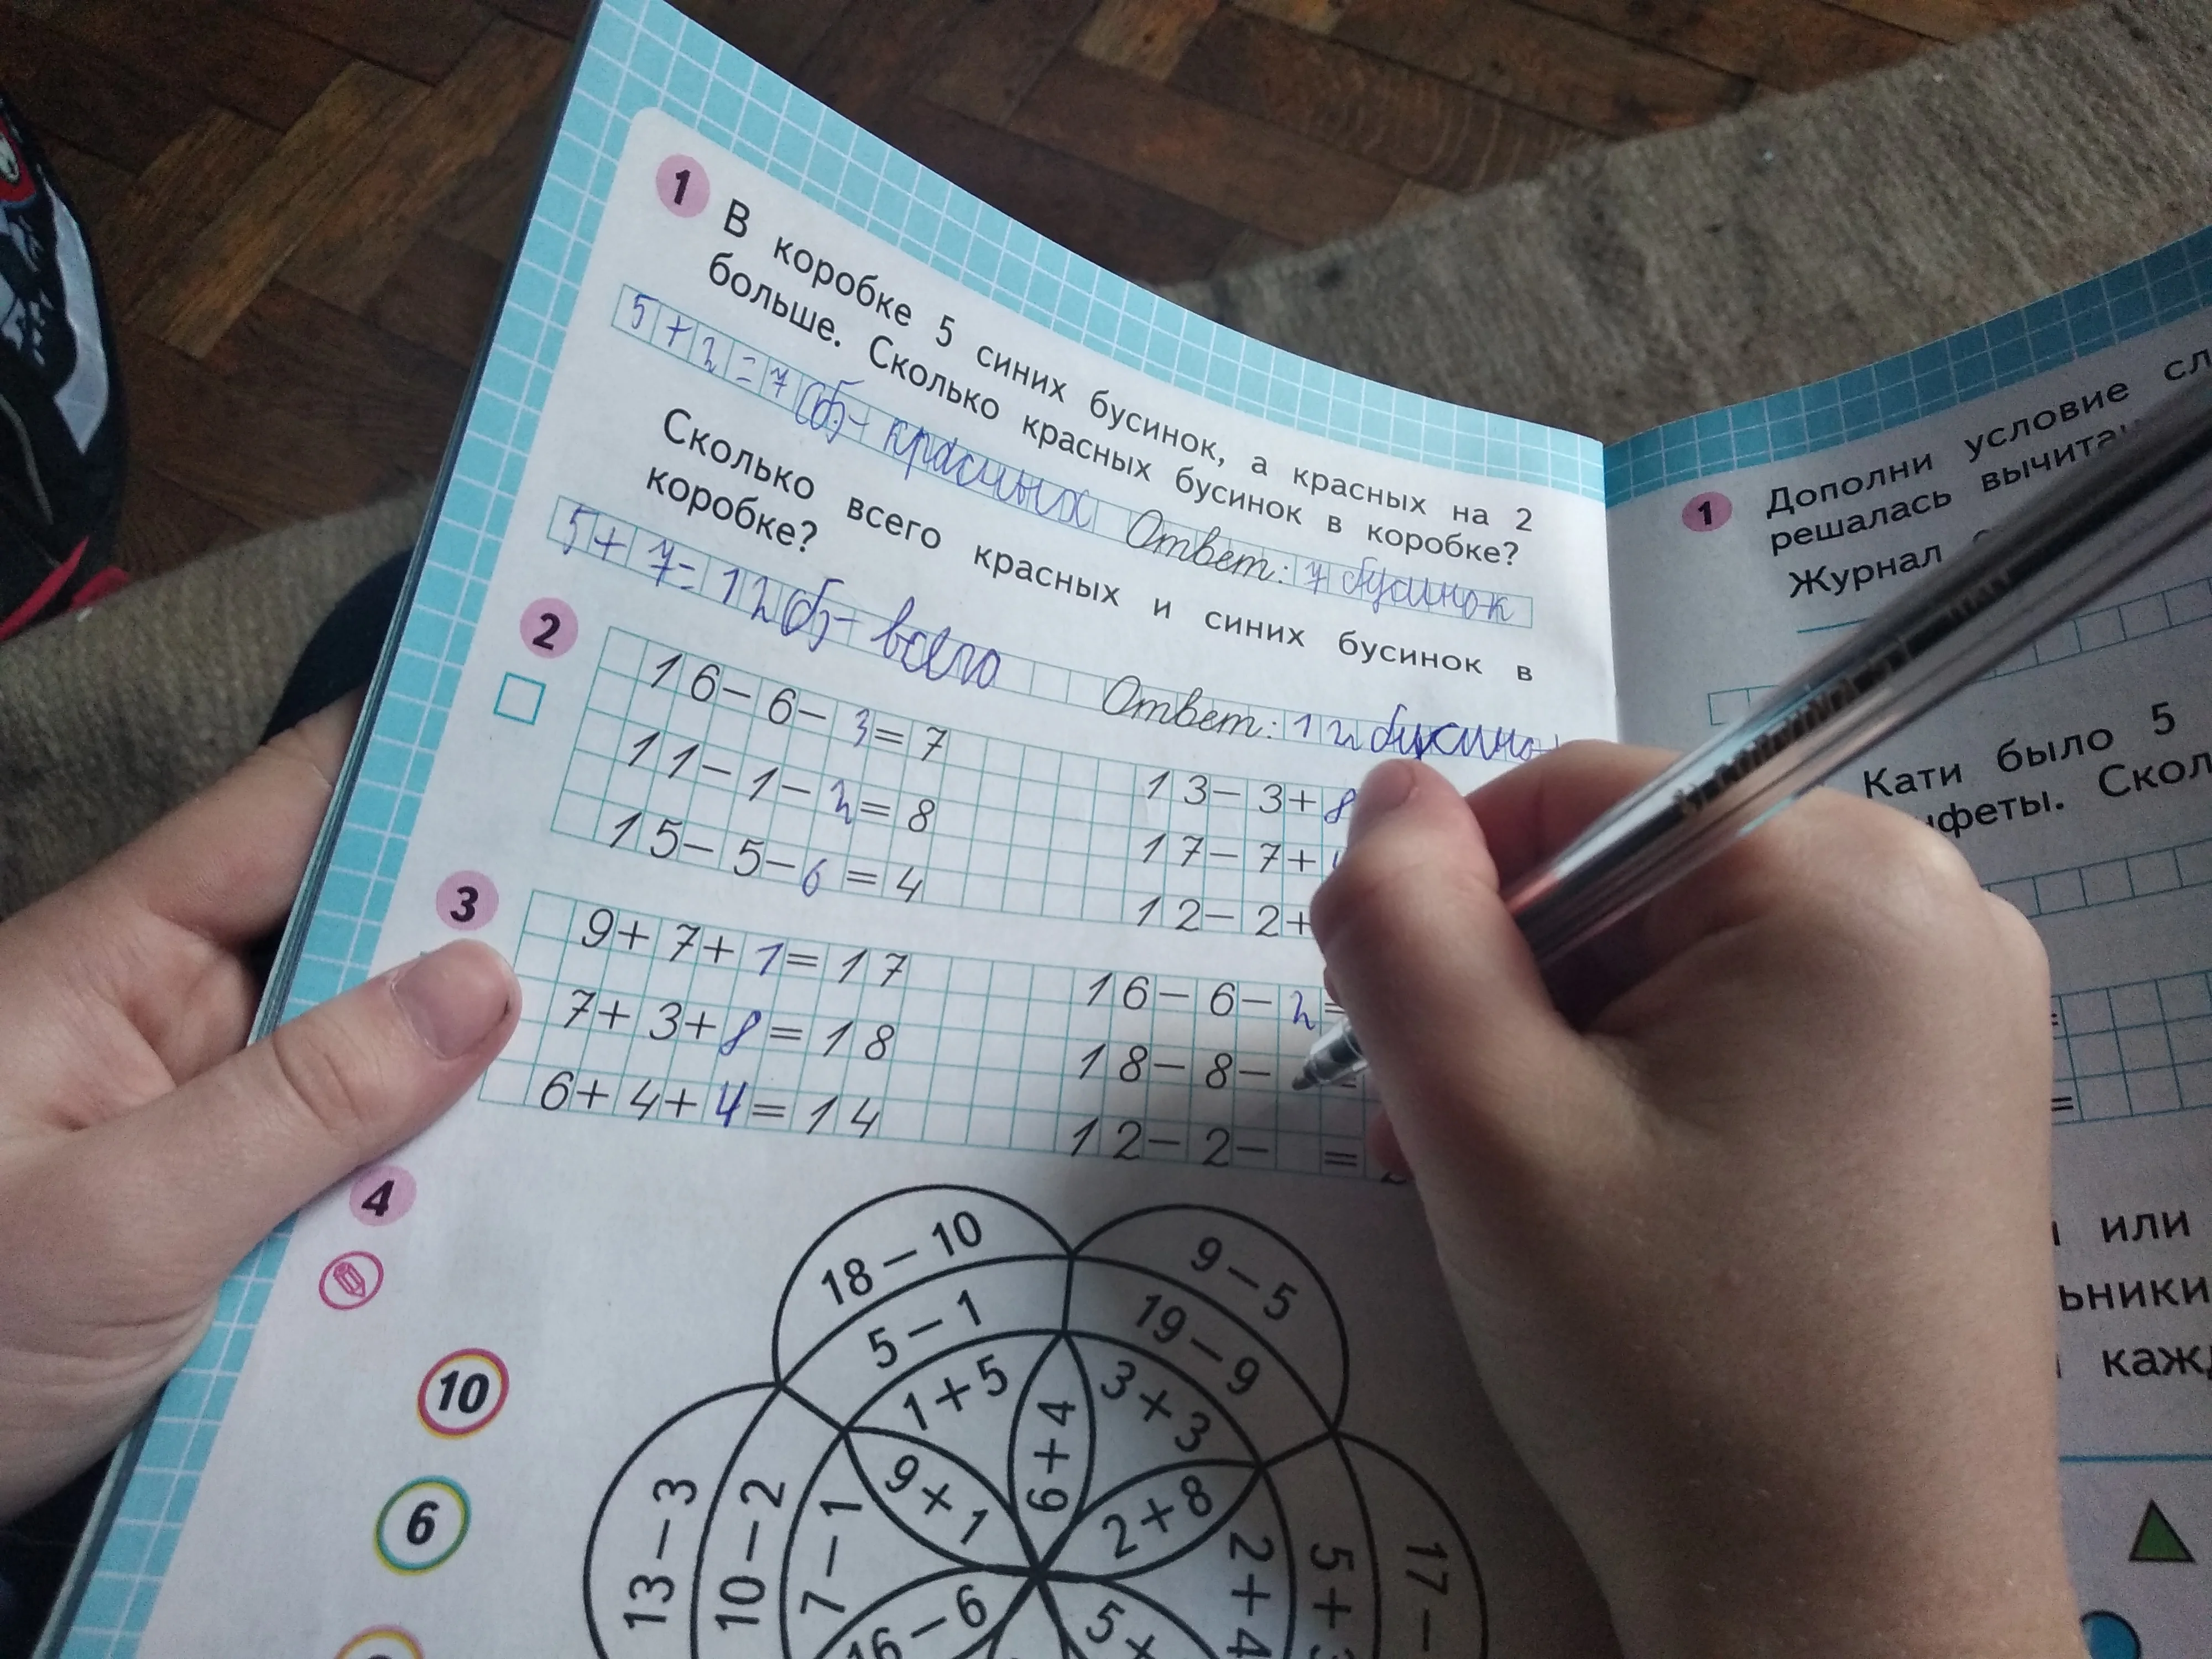 1 В коробке 5 синих бусинок, а красных на 2
больше. Сколько красных бусинок в коробке?
5+2=7(б)- красных Ответ: 7 бусинок
Сколько всего красных и синих бусинок в
коробке?
5+7=12(б)- всего Ответ: 12
2
16-6-3=7 13-3+8
11-1-2=8 17-7+
15-5-6=4 12-2+
3
9+7+1=17 16-6-2=
7+3+8=18 18-8- =
6+4+4=14 12-2- =
4
10
6
18-10
5-1
1+5
9-5
19-9
3+3
6+4
9+1
2+8
13-3
10-2
7-1
16-6
5+
2+4
5+
17-
1 Дополни условие
решалась
Журнал
Кати было 5
=
=
или
кажд